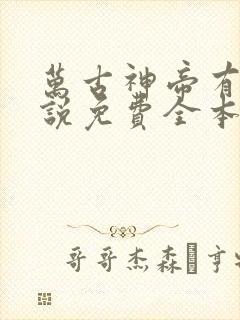 萬古神帝有
說免費全本
哥哥杰森 亨